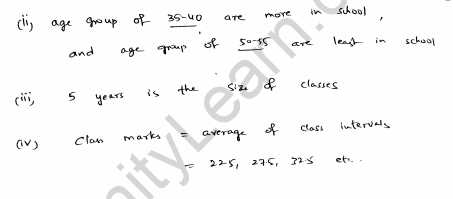 (ii) age group of 35-40 are more in school,
and age group of 50-55 are least in school
(iii) 5 years is the size of classes
(iv) Class marks = average of class intervals
= 22.5, 27.5, 32.5 etc..
nityLearn.com